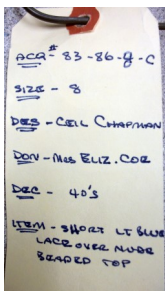 ACQ# - 83-86-g-C
SIZE - 8
DES - CEIL CHAPMAN
DON - Mrs ELIZ. COE
DEC - 40's
ITEM - SHORT LT BLUE
LACE OVER NUDE
BEADED TOP